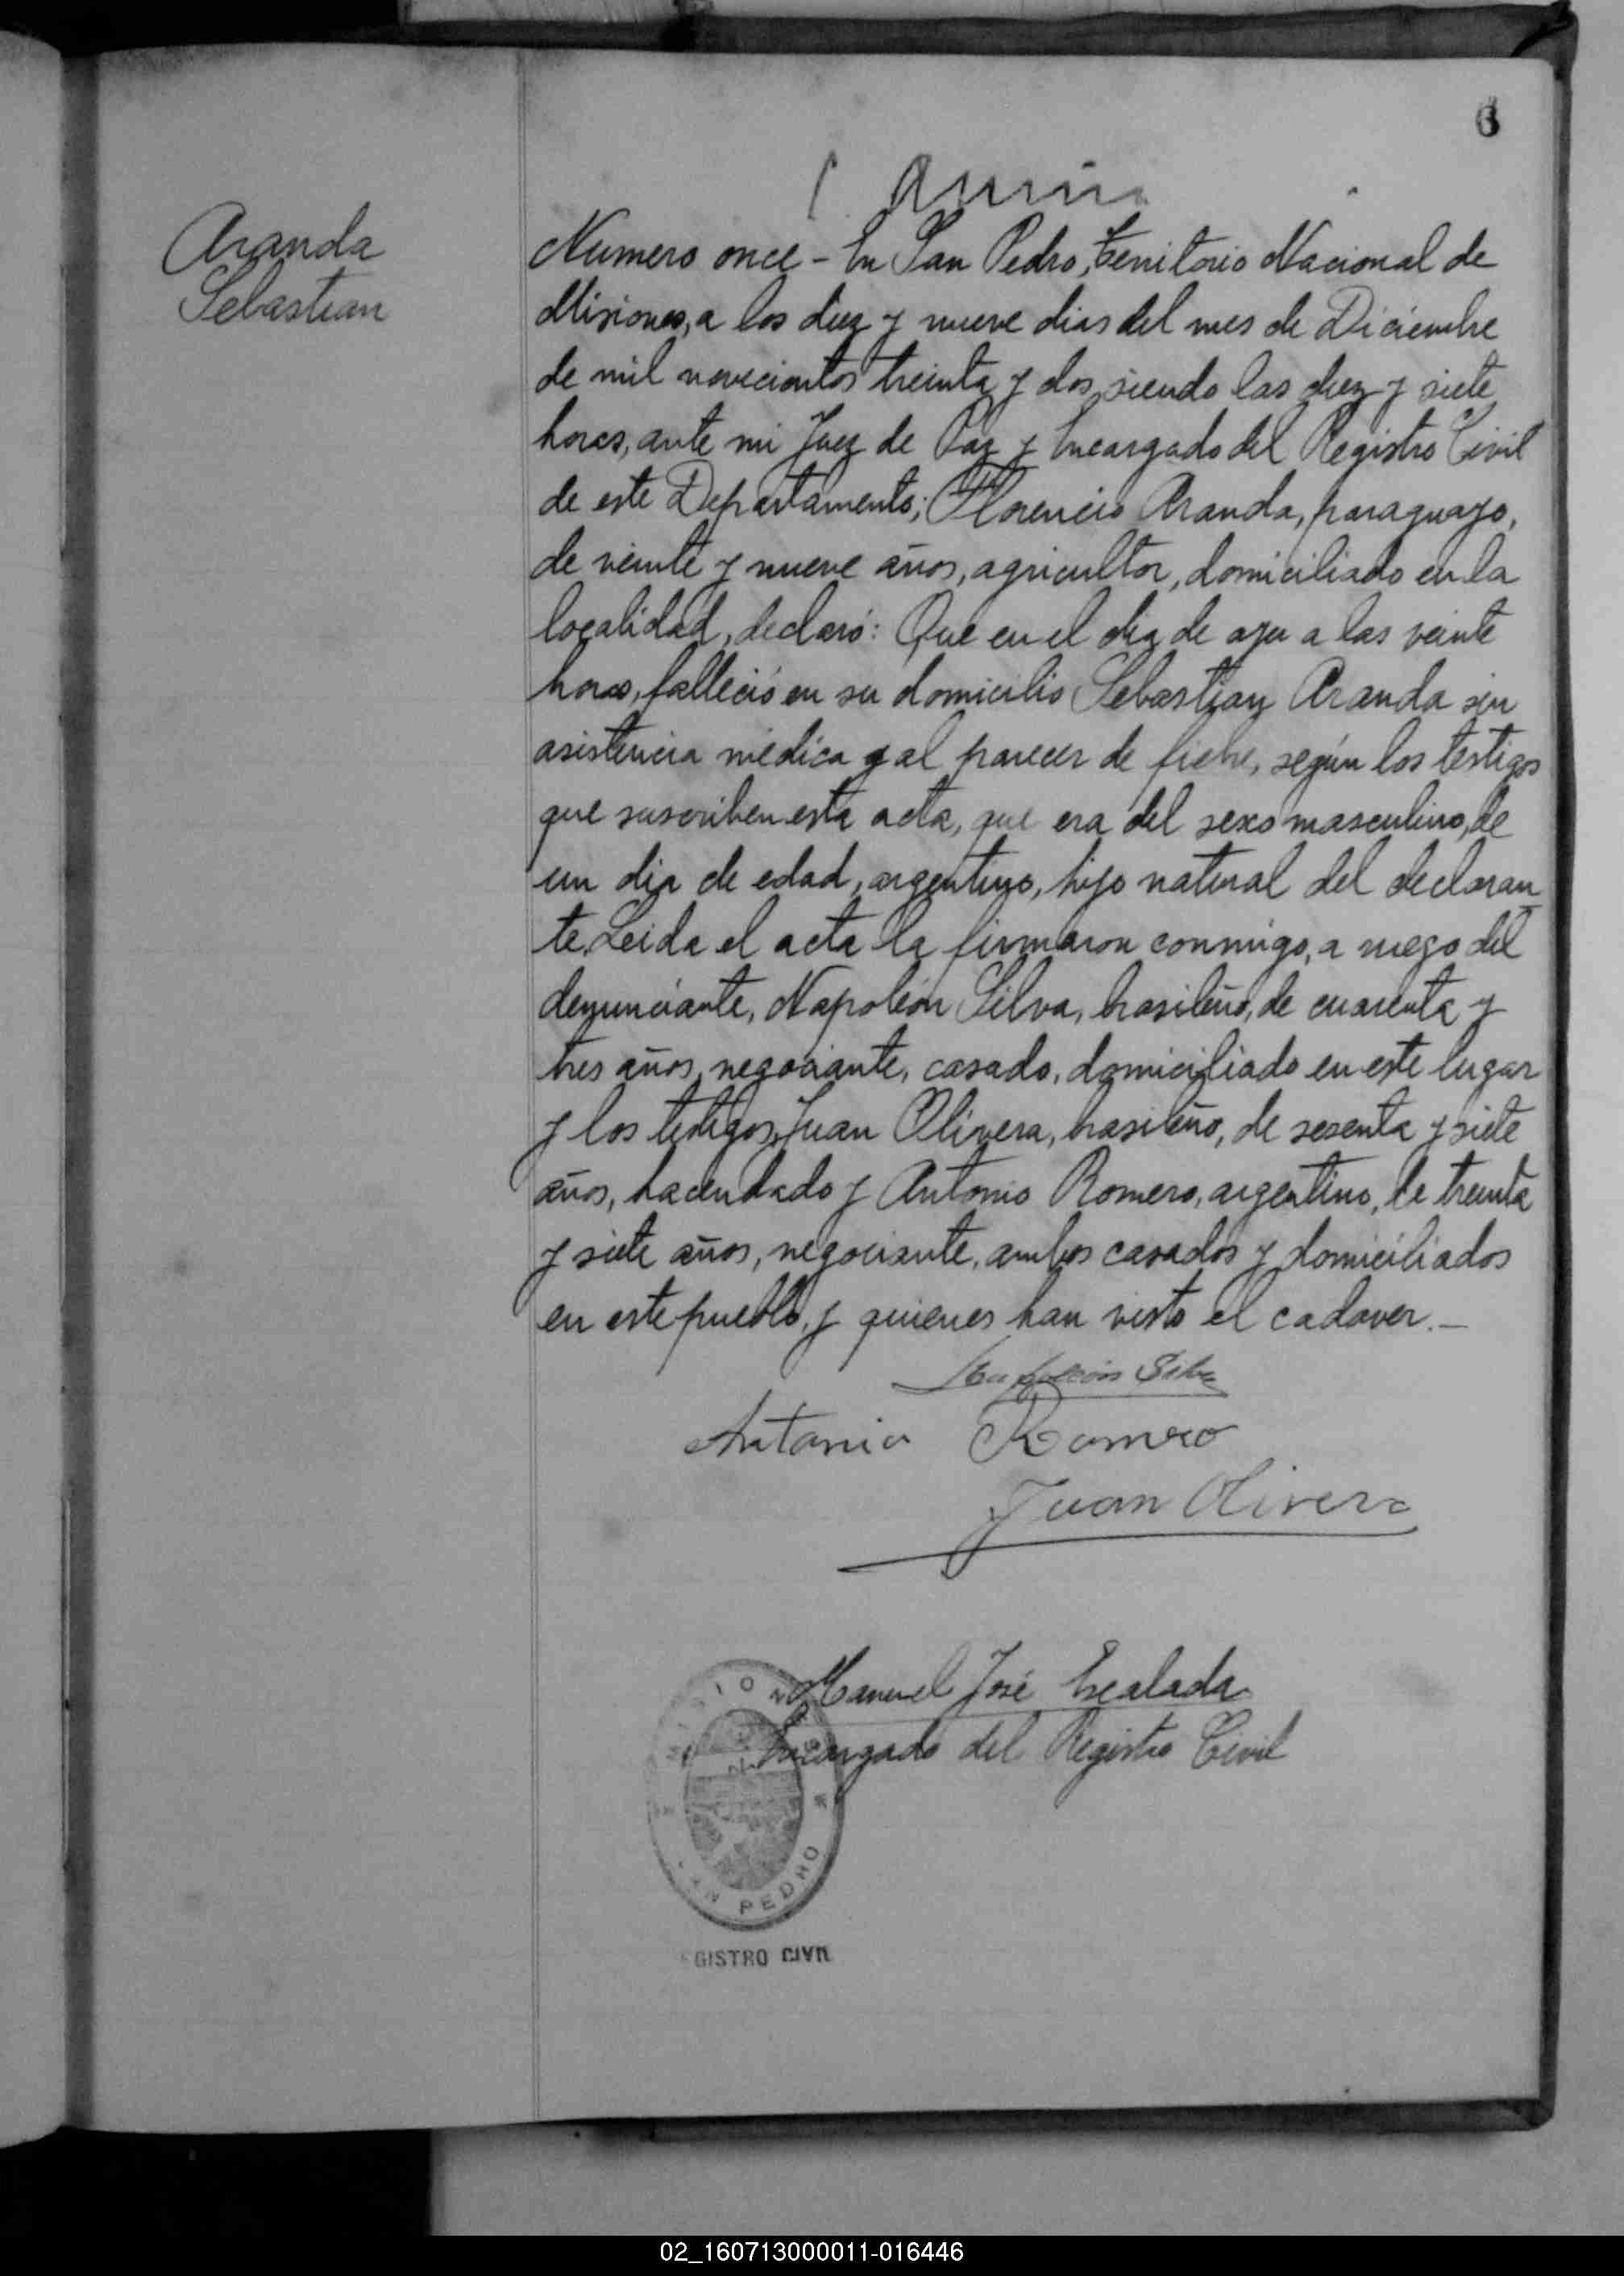 6
Aranda
Sebastian
Numero once - En San Pedro, territorio Nacional de
Misiones, a los diez y nueve dias del mes de Diciembre
de mil novecientos treinta y dos, siendo las diez y siete
horas, ante mi Juez de Paz y Encargado del Registro Civil
de este Departamento; Florencio Aranda, paraguayo,
de veinte y nueve años, agricultor, domiciliado en la
localidad, declaró: Que en el dia de ayer a las veinte
horas, falleció en su domicilio Sebastian Aranda sin
asistencia médica y al parecer de fiebre, según los testigos
que suscriben esta acta, que era del sexo masculino, de
un dia de edad, argentino, hijo natural del declaran
te. Leida el acta la firmaron conmigo, a ruego del
denunciante, Napoleón Silva, brasileño, de cuarenta y
tres años, negociante, casado, domiciliado en este lugar
y los testigos, Juan Olivera, brasileño, de sesenta y siete
años, hacendado y Antonio Romero, argentino, de treinta
y siete años, negociante, ambos casados y domiciliados
en este pueblo, y quienes han visto el cadaver.—
Napoleón Silva
Antonio Romero
Juan Olivera
Manuel José Escalada
Encargado del Registro Civil
MISIONES
SAN PEDRO
GISTRO CIVIL
02_160713000011-016446